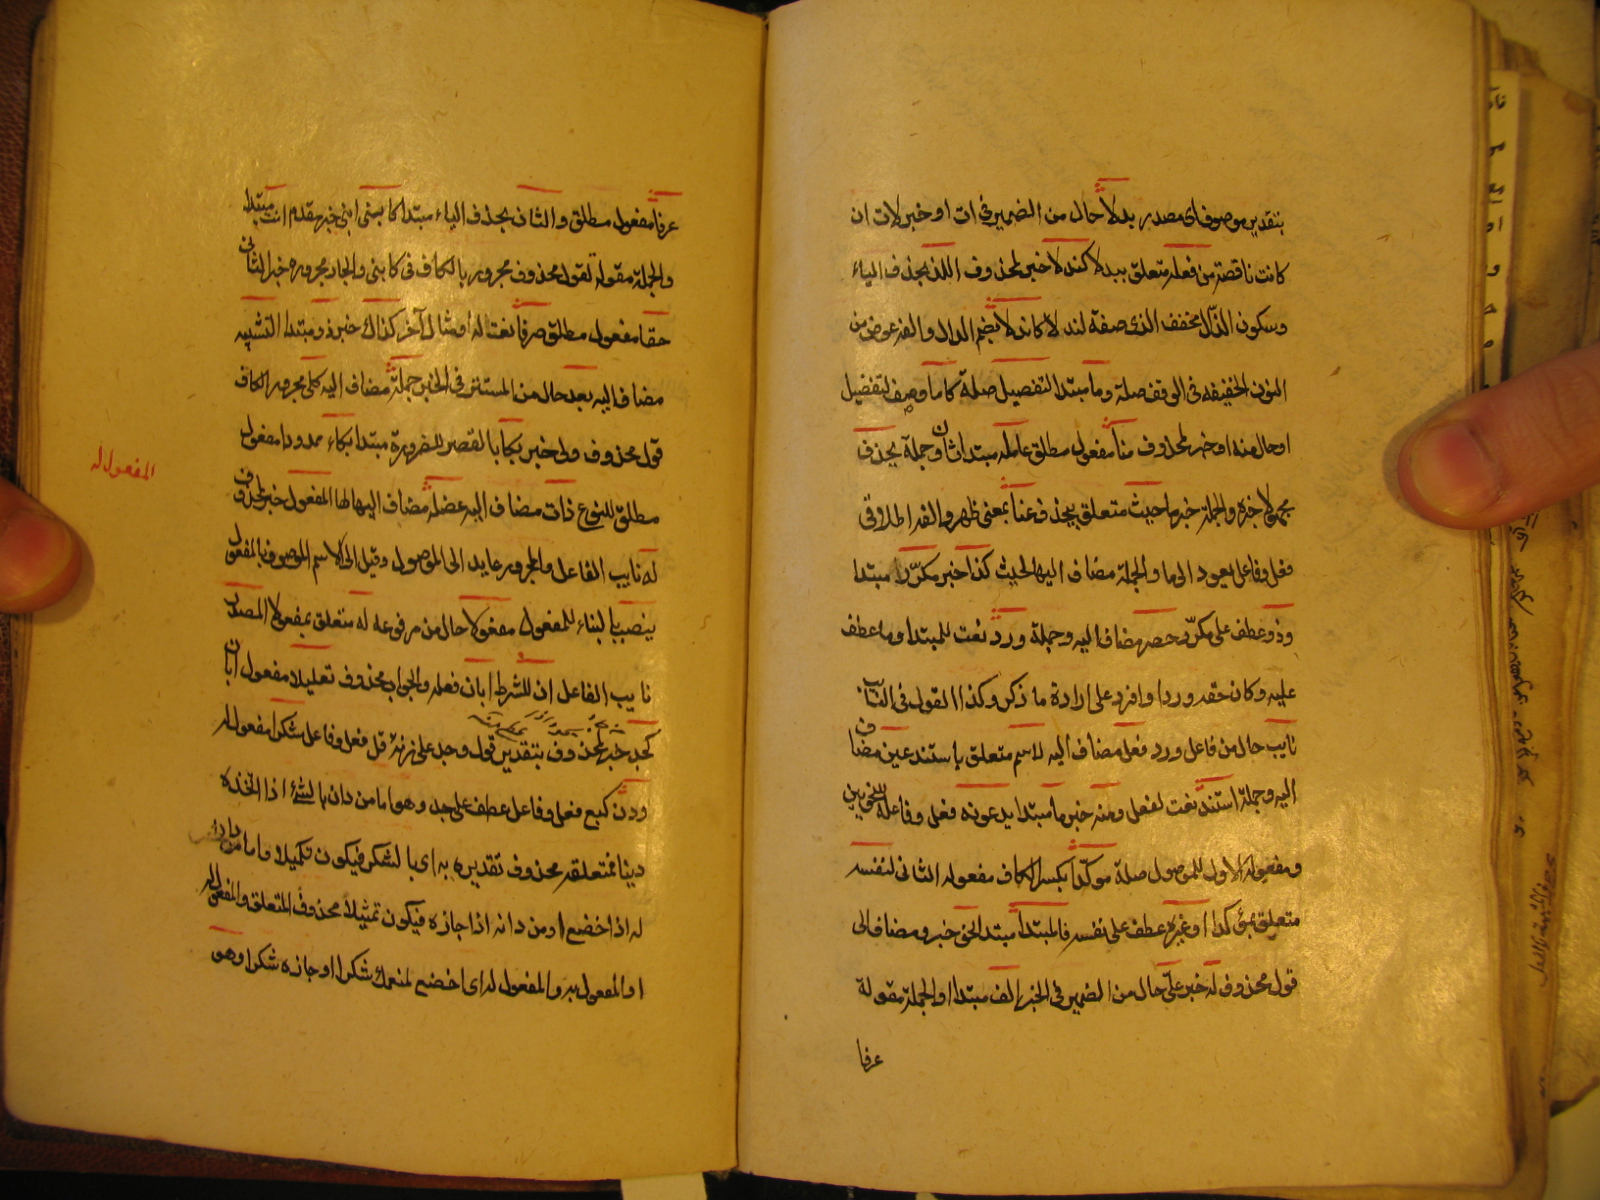 بتقدير موصوف اى مصدر بدلا حال من الضمير فى ات او خبر لات ان
كانت ناقصة من فعله متعلق ببدلا كندلا خبر لمحذوف اللذ بحذف الياء
وسكون الذال مخفف الذى صفة لندلا كاندلا بضم الدال والفه عوض من
النون الخفيفة فى الوقف صلة وما مبتدا لتفصيل صلة كاما وصف لتفضيل
او حال منه او خبر لمحذوف منا مفعول مطلق عامله مبتدا ثان وجملة يحذف
مجهولا خبره والجملة خبر ما حيث متعلق بيحذف عنا بمعنى ظهر والفه اطلاقى
فعل وفاعل يعود الى ما والجملة مضاف اليها لحيث كذا خبر مكرر مبتدا
وذو عطف على مكرر حصر مضاف اليه وجملة ورد نعت للمبتدا وما عطف
عليه وكان حقه وردا وافرد على ارادة ما ذكر وكذا القول فى الثانى
نايب حال من فاعل ورد فعل مضاف اليه لاسم متعلق باستند عين مضاف
اليه وجملة استند نعت لفعل ومنه خبر ما مبتدا يدعونه فعل وفاعله للنحويين
ومفعوله الاول للموصول صلة موكدا بكسر الكاف مفعوله الثانى لنفسه
متعلق بمؤكدا او غيره عطف على نفسه فالمبتدا مبتدا لحق خبر ومضاف الى
قول محذوف له خبر على حال من الضمير فى الخبر الف مبتدا والجملة مقولة
عرفا
عرفا مفعول مطلق والثان بحذف الياء مبتدا كابنى ابنى خبر مقدم انت مبتدا
والجملة مقولة لقول محذوف مجرور بالكاف فى كابنى والجار مجروره خبر الثانى
حقا مفعول مطلق صرفا نعت له او مثال آخر كذاك خبر ذو مبتدا التشبيه
مضاف اليه بعد حال من المستتر فى الخبر جملة مضاف اليه كلى مجرور الكاف
قول محذوف ولى خبر بكا بالقصر للضرورة مبتدا بكاء ممدودا مفعول
مطلق للنوع ذات مضاف اليه عضلة مضاف اليها لها المفعول خبر لمحذوف
له نايب الفاعل والمجرور عايد الى الموصول وقيل الى الاسم الموصوف بالمفعول
المفعول له
ينصب بالبناء للمفعول مفعولا حال من مرفوعه له متعلق بمفعولا المصدر
نايب الفاعل ان للشرط ابان فعله والجواب محذوف تعليلا مفعول ابان
كجد خبر لمحذوف بتقدير قول وجد على زنة قل فعل وفاعل شكرا مفعول له
ودن كبع فعل وفاعل عطف على جد وهو اما من دان بالشئ اذا اتخذه
دينا فمتعلقه محذوف تقديره به اى بالشكر فيكون تكميلا واما من دان
له اذا خضع او من دانه اذا جازه فيكون تمثيلا محذوف المتعلق والمفعول له
او المفعول به والمفعول له اى اخضع لمنعمك شكرا او جازه شكرا وهو